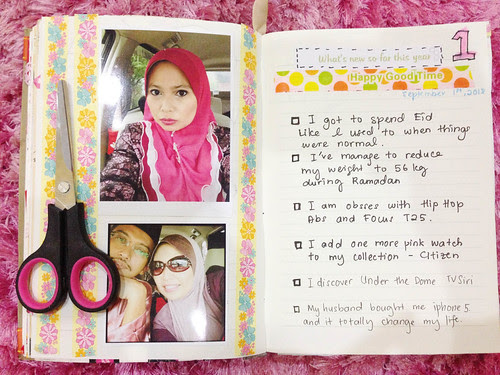 1
What's new so far this year
Happy Good Time
September 1st, 2013
I got to spend Eid
Like I used to when things
were normal.
I've manage to reduce
my weight to 56 kg
during Ramadan
I am obsses with Hip Hop
Abs and Focus T25.
I add one more pink watch
to my collection - Citizen
I discover Under the Dome TV Siri
My husband bought me iphone 5
and it totally change my life.